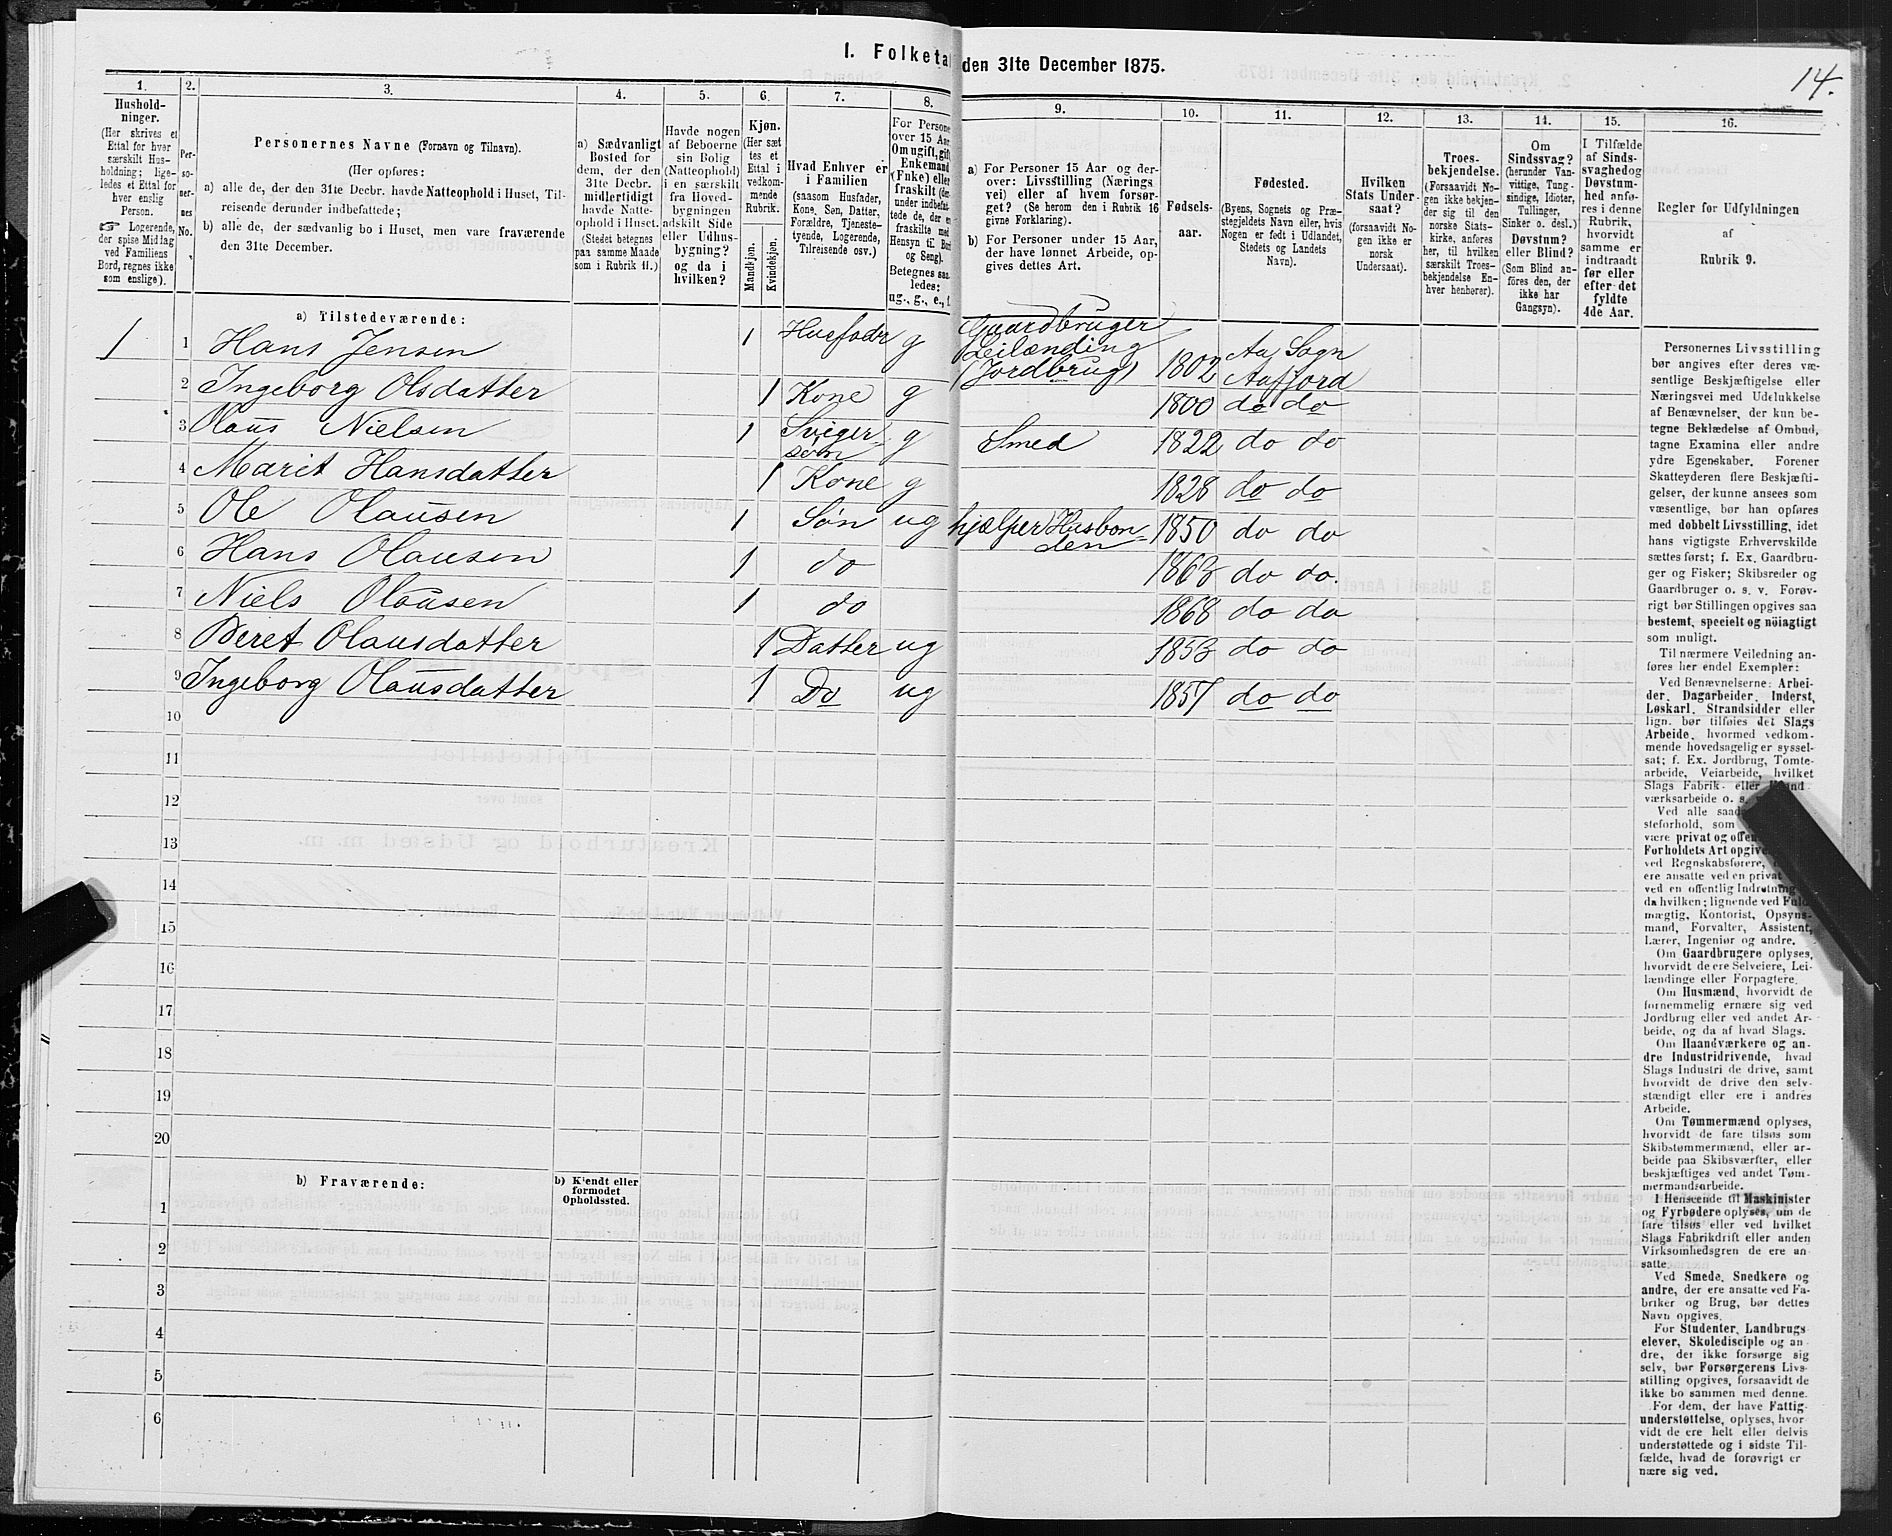 I. Folketal den 31te December 1875.
14.
1.
2.
3.
4.
5.
6.
7.
8.
9.
10.
11.
12.
13.
14.
15.
16.
Hushold-
ninger.
(Her skrives et
Ettal for hver
særskilt Hus-
holdning; lige-
ledes et Ettal for
hver enslig
Person.
Logerende,
der spise Middag
ved Familiens
Bord, regnes ikke
som enslige).
Per-
so-
ner-
nes
No.
Personernes Navne (Fornavn og Tilnavn).
(Her opføres:
a) alle de, der den 31te Decbr. havde Natteophold i Huset, Til-
reisende derunder indbefattede;
b) alle de, der sædvanlig bo i Huset, men vare fraværende
den 31te December.
a) Sædvanligt
Bosted for
dem, der den
31te Decbr.
midlertidigt
havde Natte-
ophold i Huset.
(Stedet betegnes
paa samme Maade
som i Rubrik 11.)
Havde nogen
af Beboerne
sin Bolig
(Natteophold)
i en særskilt
fra Hoved-
bygningen
adskilt Side
eller Udhus-
bygning?
og da i
hvilken?
Kjøn.
(Her sæt
tes et
Ettal i
vedkom-
mende
Rubrik.
Mandkjøn.
Kvindekjøn.
Hvad Enhver er
i Familien
(saasom Husfader,
Kone, Søn, Datter,
Forældre, Tjeneste-
tyende, Logerende,
Tilreisende osv.)
For Persone
over 15 Aar
Om ugift, gift
Enkemand
(Enke) eller
fraskilt (der
under indbefat
tede de, der er
fraskilte med
Hensyn til Bord
og Seng).
Betegnes saa
ledes:
ug., g., e., f.
a) For Personer 15 Aar og der-
over: Livsstilling (Nærings
vei) eller af hvem forsør-
get? (Se herom den i Rubrik 16
givne Forklaring).
b) For Personer under 15 Aar,
der have lønnet Arbeide, op-
gives dettes Art.
Fødsels-
aar.
Fødested.
(Byens, Sognets og Præ-
stegjeldets Navn eller, hvis
Nogen er født i Udlandet,
Stedets og Landets
Navn).
Hvilken
Stats Under-
saat?
(forsaavidt No-
gen ikke er
norsk
Undersaat).
Troes-
bekjendelse.
(Forsaavidt No-
gen ikke bekjen-
der sig til den
norske Stats-
kirke, anføres
her, til hvilken
særskilt Troes-
bekjendelse En-
hver henhører).
Om
Sindssvag?
(herunder Van-
vittige, Tung-
sindige, Idioter,
Tullinger,
Sinker o. desl.)
Døvstum?
eller Blind?
(Som Blind an-
føres den, der
ikke har
Gangsyn).
I Tilfælde
af Sinds-
svaghed og
Døvstum-
hed anfø-
res i denne
Rubrik,
hvorvidt
samme er
indtraadt
før eller
efter det
fyldte
4de Aar.
Regler for Udfyldningen
af
Rubrik 9.
a) Tilstedeværende:
1 1 Hans Jensen 1 Husfader g Gaardbruger
Leilænding
(Jordbrug) 1802 Aa Sogn
Aafjord
2 Ingeborg Olsdatter 1 Kone g 1800 do do
3 Olaus Nielsen 1 Sviger-
søn g Smed 1822 do do
4 Marit Hansdatter 1 Kone g 1828 do do
5 Ole Olausen 1 Søn ug hjælper Husbon-
den 1850 do do
6 Hans Olausen 1 do 1863 do do.
7 Niels Olausen 1 do 1868 do do
8 Beret Olausdatter 1 Datter ug 1853 do do
9 Ingeborg Olausdatter 1 Do ug 1857 do do
10
11
12
13
14
15
16
17
18
19
20
b) Fraværende:
b) Kjendt eller
formodet
Opholdssted.
1
2
3
4
5
6
Personernes Livsstilling
bør angives efter deres væ-
sentlige Beskjæftigelse eller
Næringsvei med Udelukkelse
af Benævnelser, der kun be-
tegne Beklædelse af Ombud,
tagne Examina eller andre
ydre Egenskaber. Forener
Skatteyderen flere Beskjæfti-
gelser, der kunne ansees som
væsentlige, bør han opføres
med dobbelt Livsstilling, idet
hans vigtigste Erhvervskilde
sættes først; f. Ex. Gaardbru-
ger og Fisker; Skibsreder og
Gaardbruger o. s. v. Forøv-
rigt bør Stillingen opgives saa
bestemt, specielt og nöiagtigt
som muligt.
Til nærmere Veiledning an-
føres her endel Exempler:
Ved Benævnelserne: Arbei-
der, Dagarbeider, Inderst,
Løskarl, Strandsidder eller
lign. bør tilføies det Slags
Arbeide, hvormed vedkom-
mende hovedsagelig er syssel-
sat; f. Ex. Jordbrug, Tomte-
arbeide, Veiarbeide, hvilket
Slags Fabrik- eller
værksarbeide o. s.
Ved alle
steforhold, som
være privat og
Forholdets Art
ved Regnskabsførere,
ere ansatte ved en privat
ved en offentlig Indretning
da hvilken; lignende ved Fuld
mægtig, Kontorist, Opsyns-
mand, Forvalter, Assistent,
Lærer, Ingeniør og andre.
Om Gaardbrugere oplyses,
hvorvidt de ere Selveiere, Lei-
lændinge eller Forpagtere.
Om Husmænd, hvorvidt de
fornemmelig ernære sig ved
Jordbrug eller ved andet Ar-
beide, og da af hvad Slags.
Om Haandværkere og an-
dre Industridrivende, hvad
Slags Industri de drive, samt
hvorvidt de drive den selv-
stændigt eller ere i andres
Arbeide.
Om Tømmermænd oplyses,
hvorvidt de fare tilsøs som
Skibstømmermænd, eller ar-
beide paa Skibsværfter, eller
beskjæftiges ved andet Tøm-
mermandsarbeide.
I Henseende til Maskinister
og Fyrbødere oplyses, om de
fare tilsøs eller ved hvilket
Slags Fabrikdrift eller anden
Virksomhedsgren de ere an-
satte.
Ved Smede, Snedkere og
andre, der ere ansatte ved Fa-
briker og Brug, bør dettes
Navn opgives.
For Studenter, Landbrugs
elever, Skoledisciple og an-
dre, der ikke forsørge sig
selv, bør Forsørgerens Livs-
stilling opgives, forsaavidt de
ikke bo sammen med denne.
For dem, der have Fattig
understøttelse, oplyses, hvor
vidt de ere helt eller delvis
understøttede og i sidste Til-
fælde, hvad de forøvrigt er
nære sig ved.